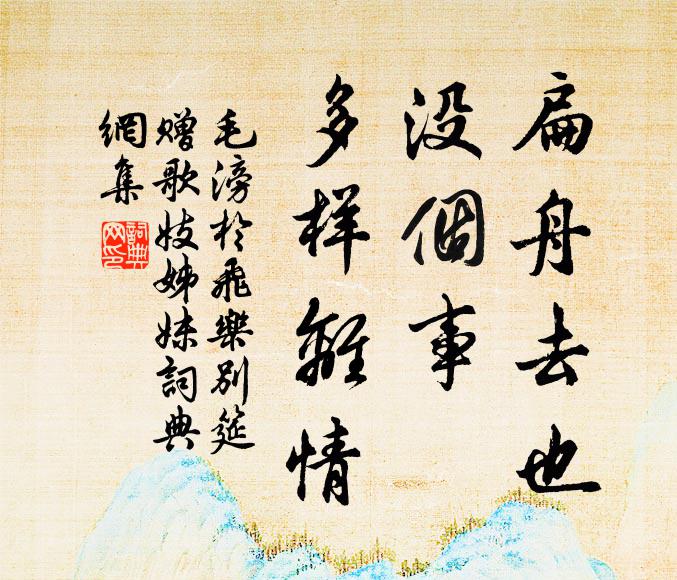 扁舟去也
没個事
多样離情
毛滂於飛樂别筵
赠歌妓姊妹詞典
網集
詞典
网印